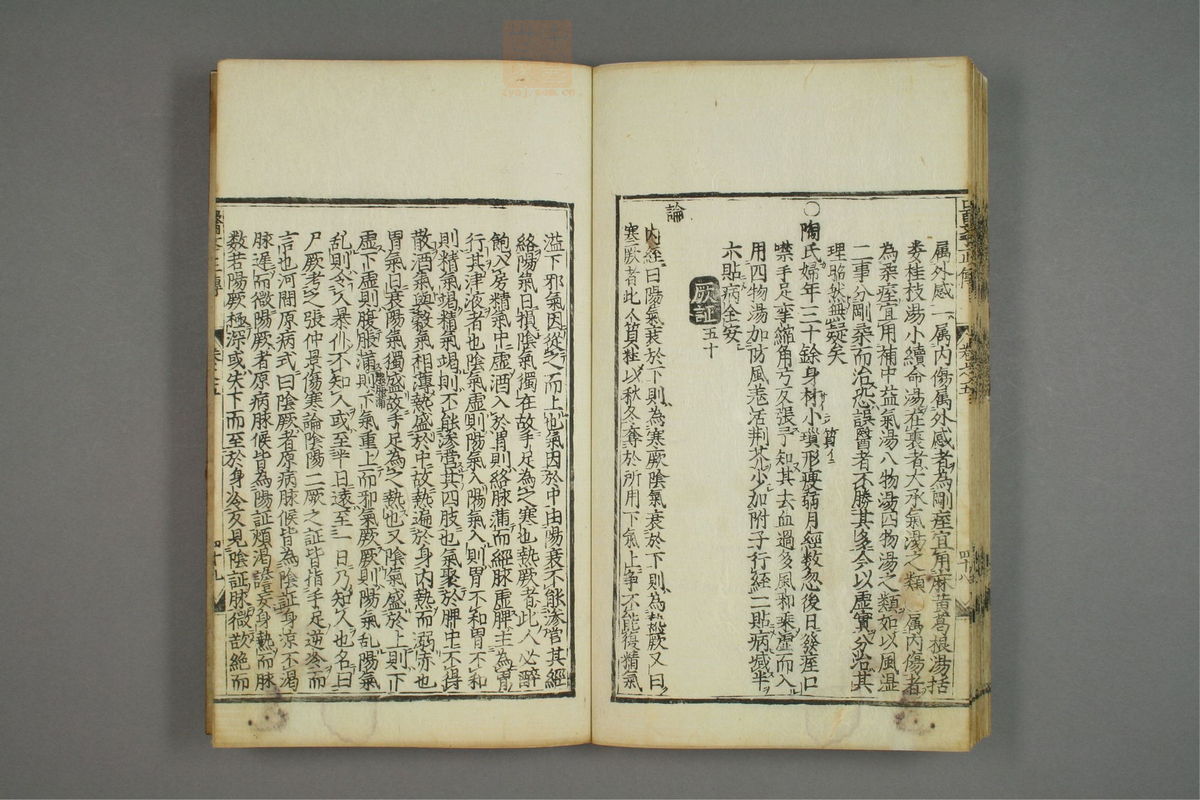 属外感一属内傷属外感者為剛痓宜用麻黄葛根湯括
蔞桂枝湯小續命湯在裏者大承氣湯之類属内傷者
為柔痓宜用補中益氣湯八物湯四物湯之類如以風濕
二事分剛柔而治恐誤醫者不勝其多今以虚實分治其
理昭然無疑矣
○陶氏婦年三十餘身材小瑣形痩弱月經数忽後日發痓口
噤手足挛縮角弓反張予知其去血過多風邪乘虚而入
用四物湯加防風羗活荆芥少加附子行經二貼病减半
六貼病全安
厥証五十
論
内經曰陽氣衰於下則為寒厥陰氣衰於下則為熱厥又曰
寒厥者此人質壮以秋冬奪於所用下氣上争不能復精氣
溢下邪氣因從之而上也氣因於中由陽衰不能滲营其經
絡陽氣日損陰氣獨在故手足為之寒也熱厥者此人必醉
飽入房精氣中虚酒入於胃則絡脉蒲而經脉虚脾主為胃
行其津液者也陰氣虚則陽氣入陽氣入則胃不和胃不和
則精氣竭精氣竭則不能滲营其四肢也氣聚於脾中不得
散酒氣與穀氣相薄熱盛於中故熱遍於身内熱而溺赤也
胃氣日衰陽氣獨盛故手足為之熱也又陰氣盛於上則下
虚下虚則腹脹蒲則下氣重上而邪氣厥厥則陽氣乱陽氣
乱則令人暴仆不知人或至半日遠至一日乃知人也名曰
尸厥考之張仲景傷寒論陰陽二厥之証皆指手足逆冷而
言也河間原病式曰陰厥者原病脉候皆為陰証身凉不渇
脉遅而微陽厥者原病脉候皆為陽証煩渇譫妄身熱而脉
数若陽厥極深或失下而至於身冷反見陰証脉微欲絶而
四十九